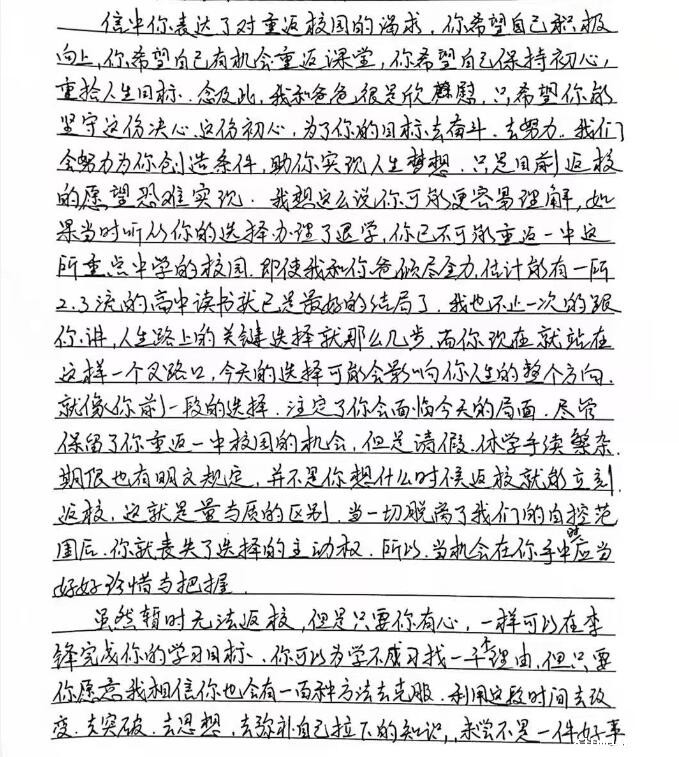 信中你表达了对重返校园的渴求，你希望自己积极
向上，你希望自己有机会重返课堂，你希望自己保持初心，
重拾人生目标。念及此，我和爸爸很是欣慰，只希望你能
坚守这份决心，这份初心，为了你的目标去奋斗、去努力。我们
会努力为你创造条件，助你实现人生梦想。只是目前返校
的愿望恐难实现。我想这么说你可能更容易理解，如
果当时听从你的选择办理了退学，你已不可能重返一中这
所重点中学的校园。即使我和你爸倾尽全力，估计能有一所
2.3流的高中读书就已是最好的结局了。我也不止一次的跟
你讲，人生路上的关键选择就那么几步，而你现在就站在
这样一个叉路口，今天的选择可能会影响你人生的整个方向，
就像你前一段的选择，注定了你会面临今天的局面。尽管
保留了你重返一中校园的机会，但是请假、休学手续繁杂，
期限也有明文规定，并不是你想什么时候返校就能立刻
返校，这就是量与质的区别。当一切脱离了我们的自控范
围后，你就丧失了选择的主动权。所以，当机会在你手中时应当
好好珍惜与把握。
虽然暂时无法返校，但是只要你有心，一样可以在李
锋完成你的学习目标、你可以为学不成习找一千个理由，但只要
你愿意我相信你也会有一百种方法去克服。利用这段时间去改
变、去突破、去思想、去弥补自己拉下的知识，未尝不是一件好事